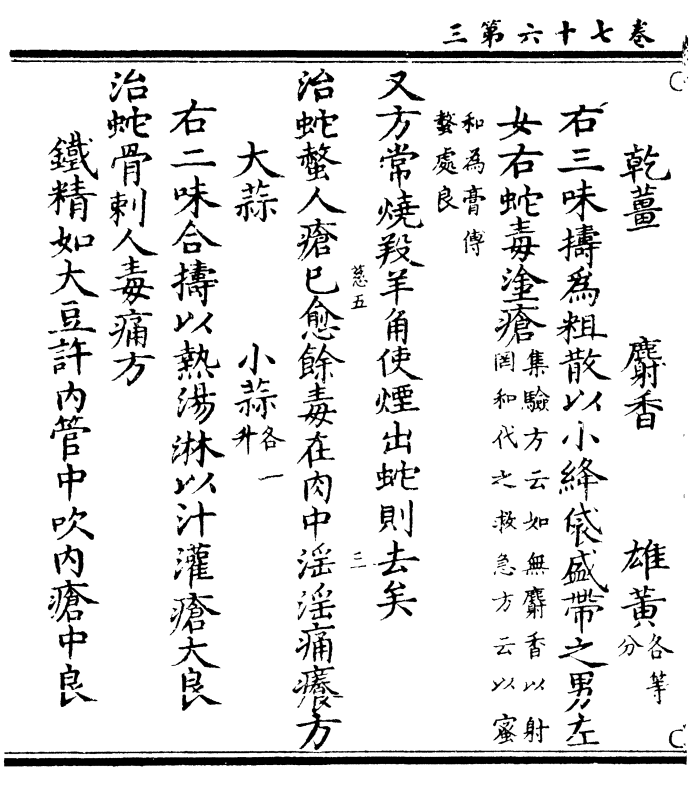 卷七十六第三
乾薑 麝香 雄黃各等分
右三味擣爲粗散以小絳袋盛帶之男左
女右蛇毒塗瘡集驗方云如無麝香以射罔和代之救急方云以蜜
和為膏傅螫處良
又方常燒羖羊角使煙出蛇則去矣
葱五 三
治蛇螫人瘡巳愈餘毒在肉中淫淫痛癢方
大蒜 小蒜各一升
右二味合擣以熱湯淋以汁灌瘡大良
治蛇骨刺人毒痛方
鐵精如大豆許內管中吹內瘡中良